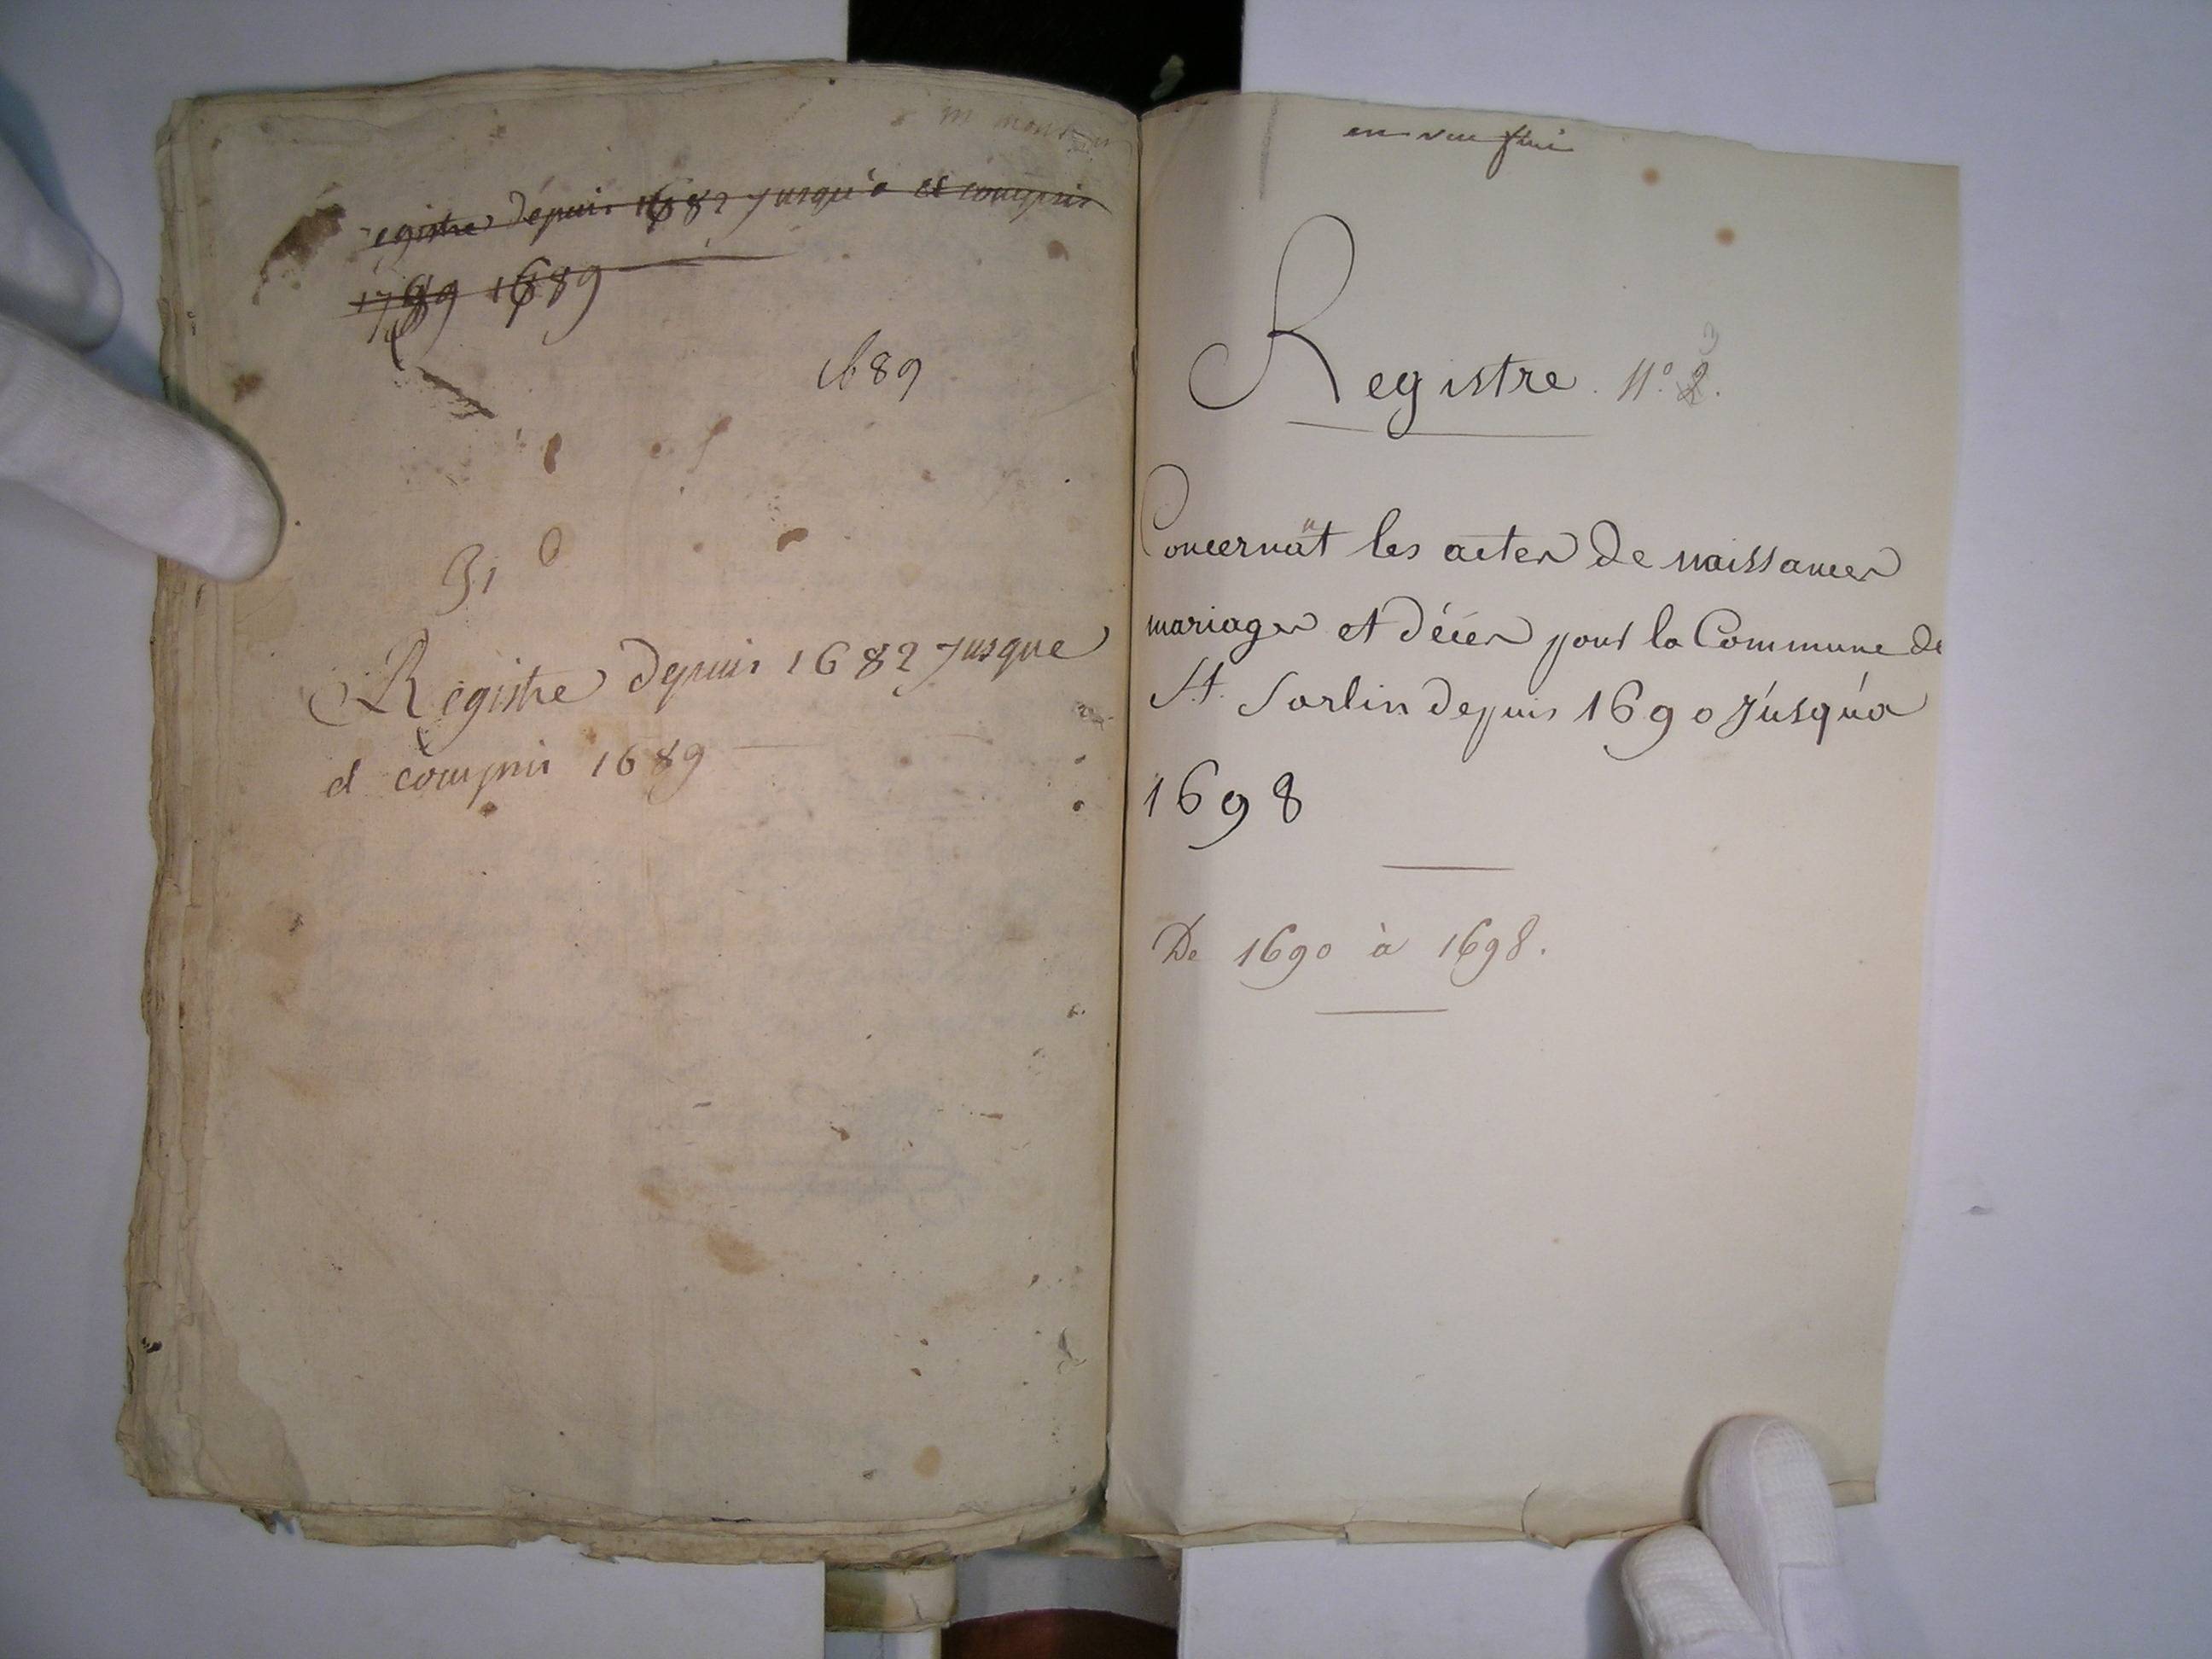 egistre depuis 1682 jusqu'a et compris
1789 1689
1689
Registre depuis 1682 jusque
et compris 1689
Registre N.º 2.
3
Concernant les actes de naissances
mariages et décès pour la Commune de
St. Sorlin depuis 1690 jusqu'a
1698
De 1690 à 1698.